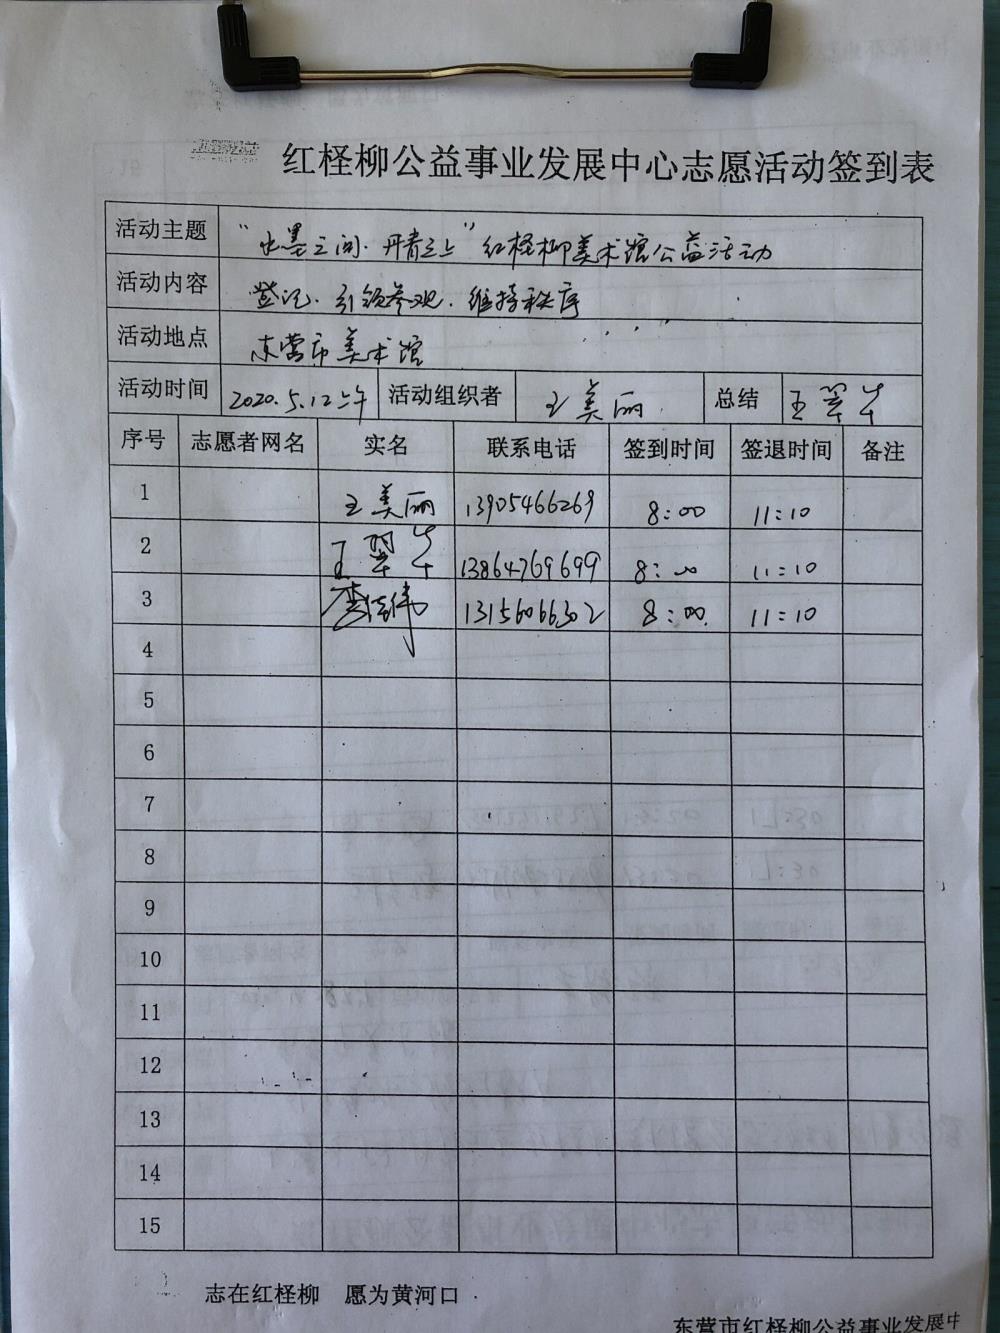 红柽柳公益事业发展中心志愿活动签到表
活动主题 "水墨之间·丹青之上"红柽柳美术馆公益活动
活动内容 登记、引领参观、维持秩序
活动地点 东营市美术馆
活动时间 2020.5.12上午 活动组织者 王美丽 总结 王翠华
序号 志愿者网名 实名 联系电话 签到时间 签退时间 备注
1 王美丽 13905466269 8:00 11:10
2 王翠华 13864769699 8:00 11:10
3 李佳伟 13156066302 8:00 11:10
4
5
6
7
8
9
10
11
12
13
14
15
志在红柽柳 愿为黄河口
东营市红柽柳公益事业发展中